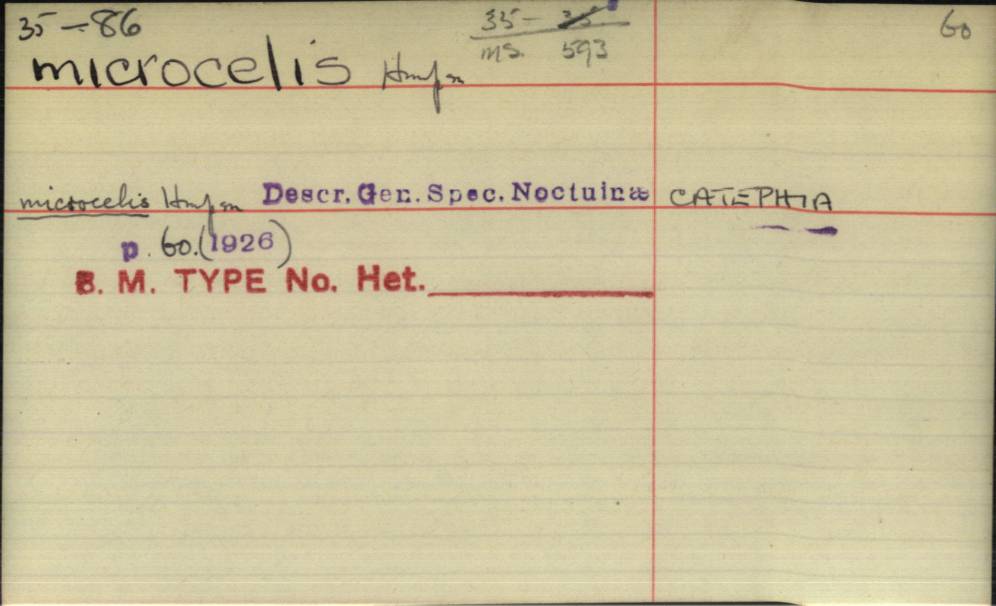 35-86 33- 35 60
ms. 593
microcelis Hmpsn
microcelis Hmpsn Descr. Gen. Spec. Noctuinæ CATEPHIA
p. 60. (1926)
B. M. TYPE No. Het.